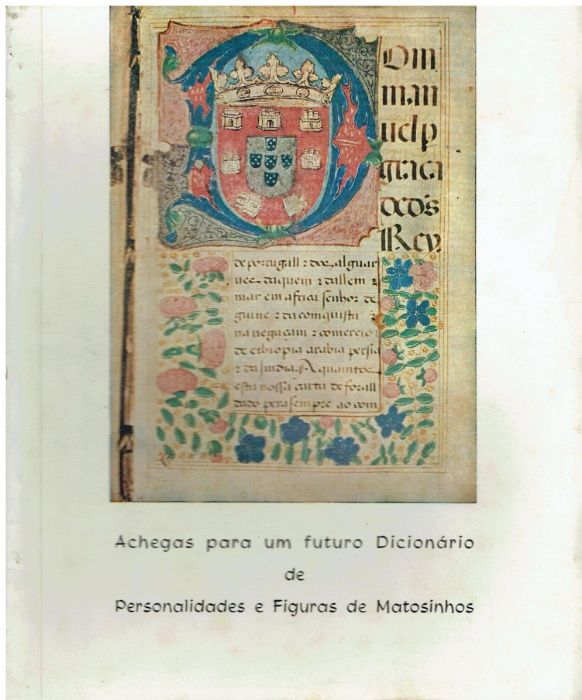 Dom
man
uel p
graça
de ds
Rey
de portugall z dos alguar
ues daquem z dallem z
mar em africa senhor de
guine z da conquista z
nauegaçam z comercio
de ethiopia arabia persia
z da india. A quantos
esta nossa carta de forall
dado pera sempre ao com
Achegas para um futuro Dicionário
de
Personalidades e Figuras de Matosinhos